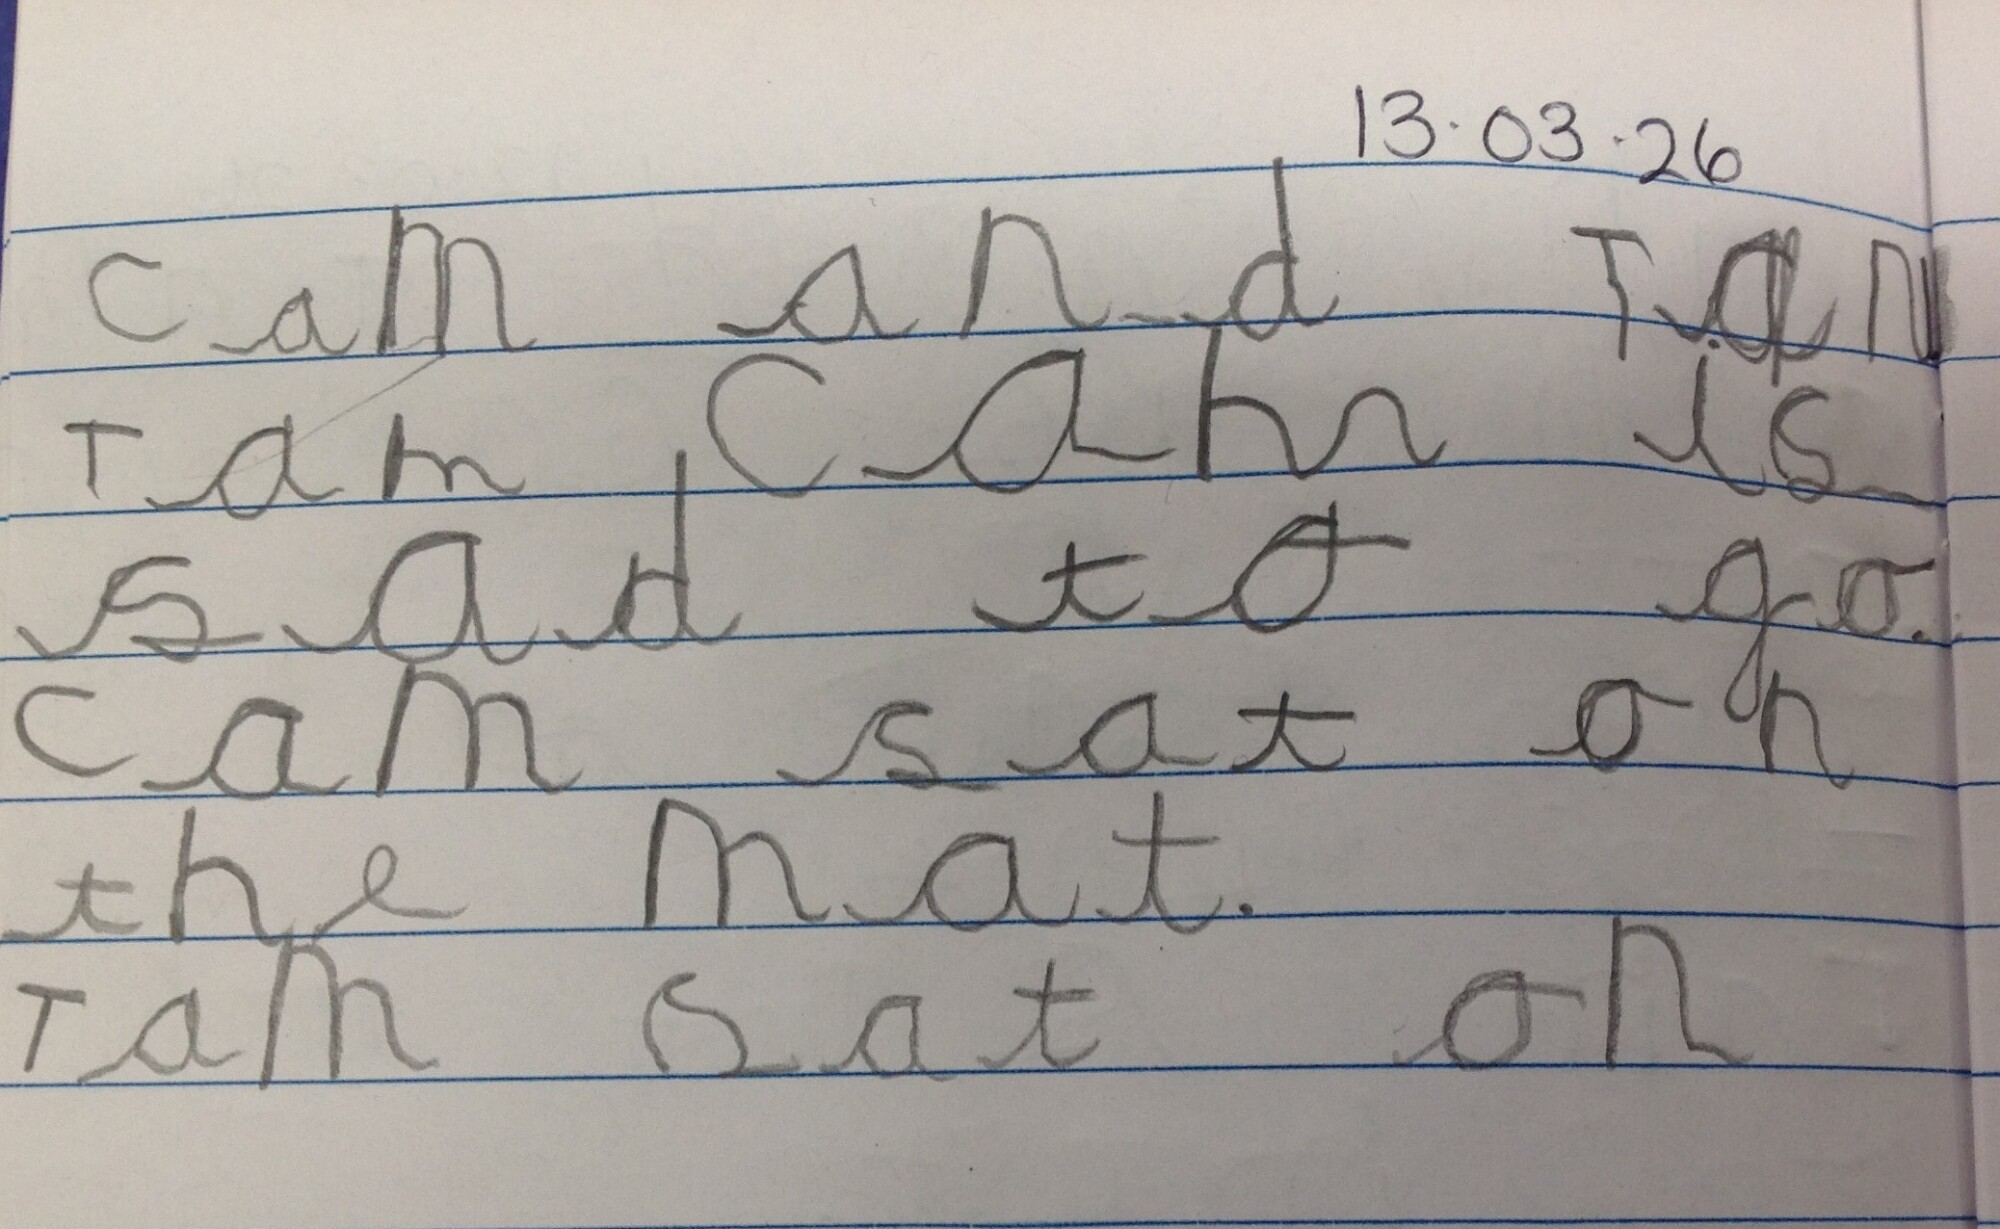 13.03.26
Cam and Tan
Tam Cam is
sad to go.
Cam sat on
the mat.
Tam sat on